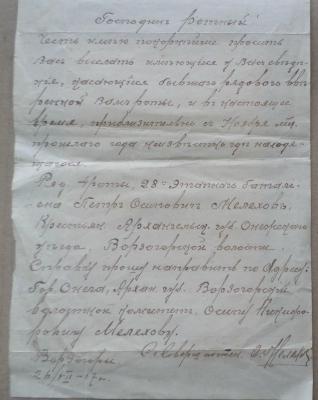 Господинъ Ротный
Честь имѣю покорнѣйше просить
Васъ выслать имѣющіяся у Васъ свѣдѣ-
нія, касающіеся бывшаго рядового ввѣ-
ренной Вамъ роты, и въ настоящее
время, приблизительно съ Ноября мц.
прошлаго года неизвѣстно гдѣ находя-
щагося.
Ряд. роты, 28го Этапнаго батале-
она Петръ Осиповичъ Мелеховъ.
Крестьян. Архангельск. губ. Онежскаго
уѣзда, Ворзогорской волости
Справку прошу направить по Адресу:
Гор. Онега, Архан. губ. Ворзогорскій
волостной комитетъ. Осипу Никифо-
ровичу Мелехову.
Ворзогоры